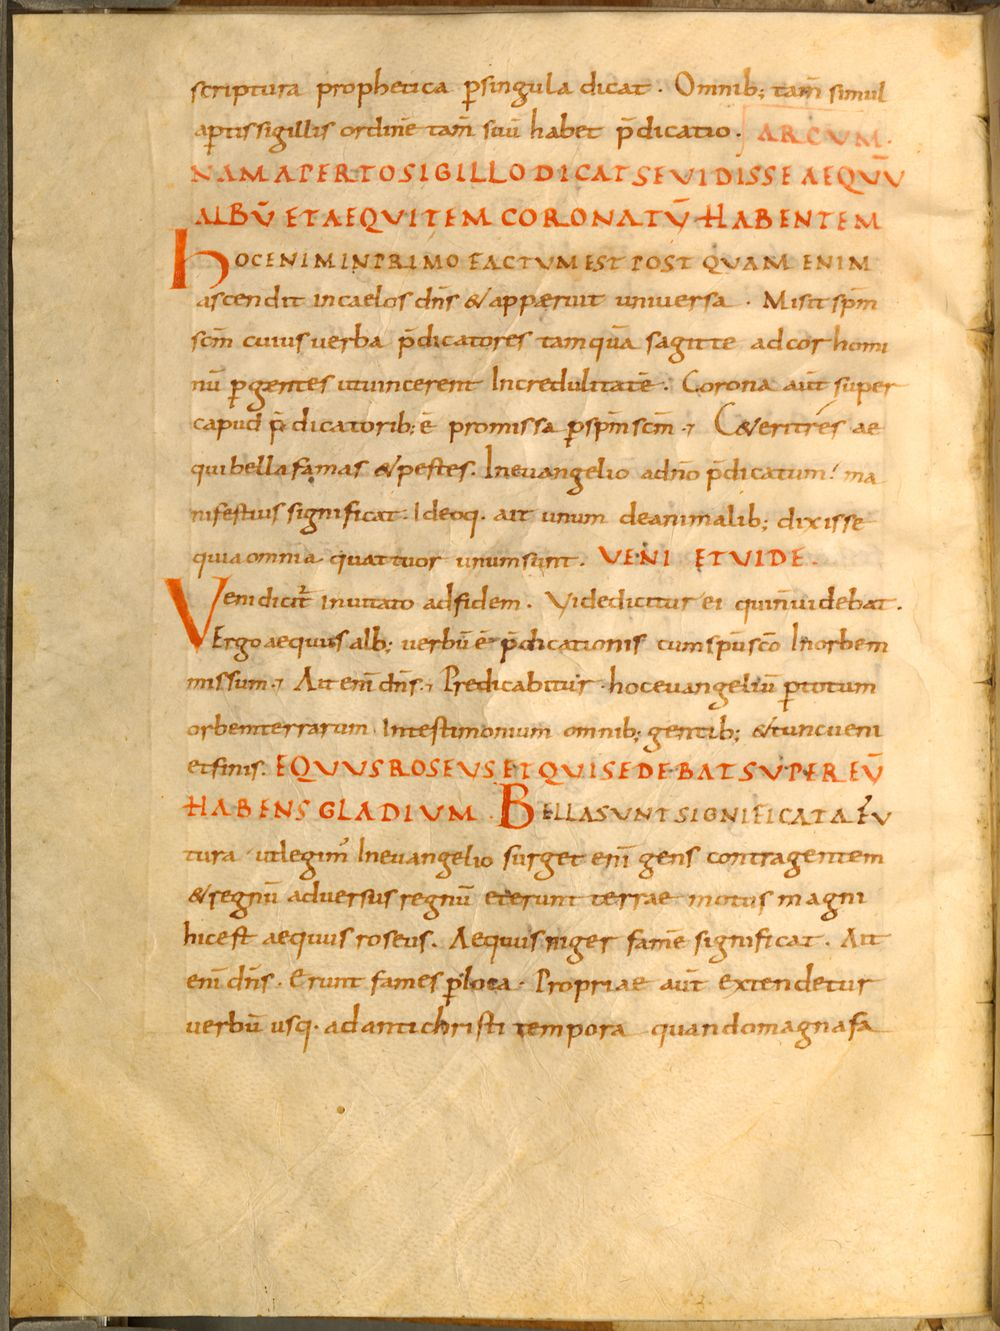 scriptura prophetica p̄singula dicat. Omnib; tam̄ simul
aptis sigillis ordinē tam̄ suū habet p̄dicatio. ARCUM.
NAM APERTO SIGILLO DICAT SE VIDISSE AEQUŪ
ALBŪ ET AEQUITEM CORONATŪ HABENTEM
HOC ENIM IN PRIMO FACTUM EST POST QUAM ENIM
ascendit in caelos dn̄s & apperuit universa. Misit sp̄m
sc̄m cuius verba p̄dicatores tamquā sagitte ad cor homi
nū p̄gentes ut vincerent Incredulitatē. Corona aūt super
capud p̄dicatorib; ē promissa p̄ sp̄m sc̄m. C&eri tres ae
qui bella famas & pestes. In evangelio a dn̄o p̄dicatum! ma
nifestius significat. Ideoq. ait unum de animalib; dixisse
quia omnia quattuor unum sunt. VENI ET VIDE.
Veni dicit̄ invitato ad fidem. Vide dicitur ei qui n̄ videbat.
Ergo aequus alb; verbū ē p̄dicationis cum sp̄u sc̄o In orbem
missum. Ait eni̅ dn̄s. Predicabitur hoc evangeliū p̄ totum
orbem terrarum In testimonium omnib; gentib; & tunc veni
et finis. EQUUS ROSEUS ET QUI SEDEBAT SUPER EŪ
HABENS GLADIUM. BELLA SUNT SIGNIFICATA FU
tura ut legim' In evangelio surget eni̅ gens contra gentem
& regnū adversus regnū et erunt terrae motus magni
hic est aequus roseus. Aequus niger famē significat. Ait
eni̅ dn̄s. Erunt fames p̄ loca. Propriae aūt extendetur
verbū usq. ad antichristi tempora quando magna fa